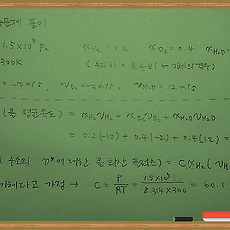 풀이
1.5×10⁵ Pa x_H₂ = 0.2 x_O₂ = 0.4 x_H₂O =
300K
= -10 m/s, v_O₂ = -2 m/s, v_H₂O = 12 m/s
(몰 평균속도) = x_H₂ v_H₂ + x_O₂ v_O₂ + x_H₂O v_H₂O
= 0.2(-10) + 0.4(-2) + 0.4(12) =
수소의 대한 몰 확산 = C x_H₂ (v_H₂
기체라고 가정 → C = P/RT = 1.5×10⁵/8.314×300 = 60.1